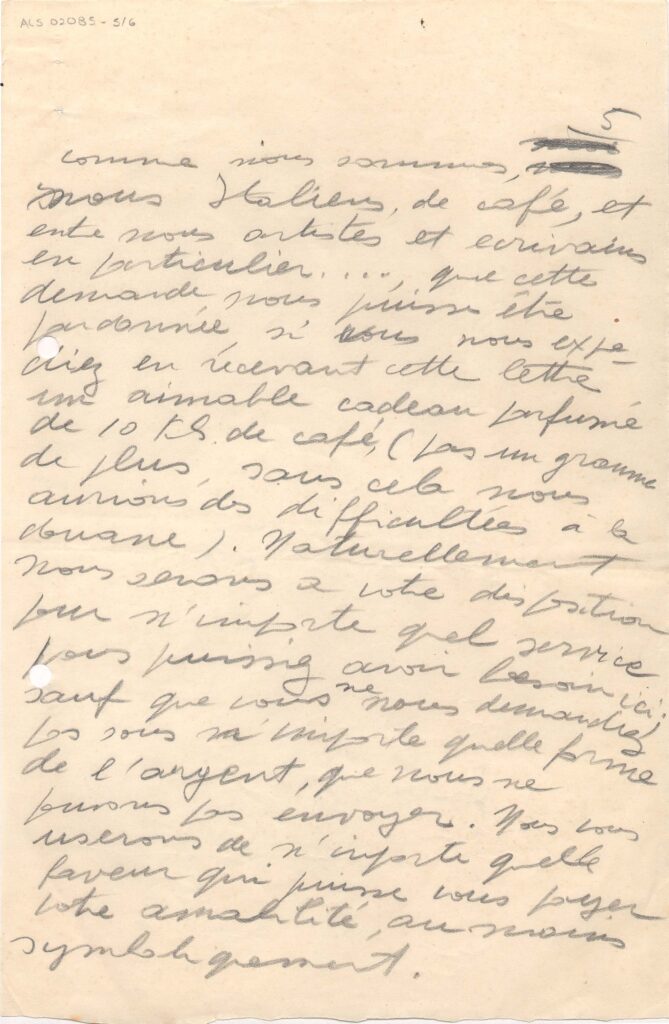 ALS 02085 - 5/6
5
comme nous sommes,
nous Italiens, de café, et
entre nous artistes et ecrivains
en particulier...., que cette
demande nous puisse être
pardonnée si vous nous expe-
diez en recevant cette lettre
un aimable cadeau parfumé
de 10 Kg. de café, (pas un gramme
de plus, sans cela nous
aurions des difficultées à la
douane). Naturellement
nous serons a votre disposition
pour n'importe quel service
puissiez avoir besoin ici,
sauf que vous ne nous demandiez
pas sous n'importe quelle forme
de l'argent, que nous ne
pouvons pas envoyer. Nous vous
userons de n'importe quelle
faveur qui puisse vous payer
votre amabilité, au moins
symboliquement.